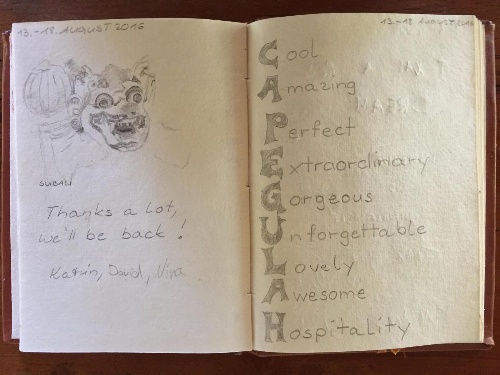 13.-18. AUGUST 2016
SUBAN
Thanks a lot,
we'll be back!
Katrin, David, Nina
13.-18. AUGUST 2016
Cool
Amazing
Perfect
Extraordinary
Gorgeous
Unforgettable
Lovely
Awesome
Hospitality